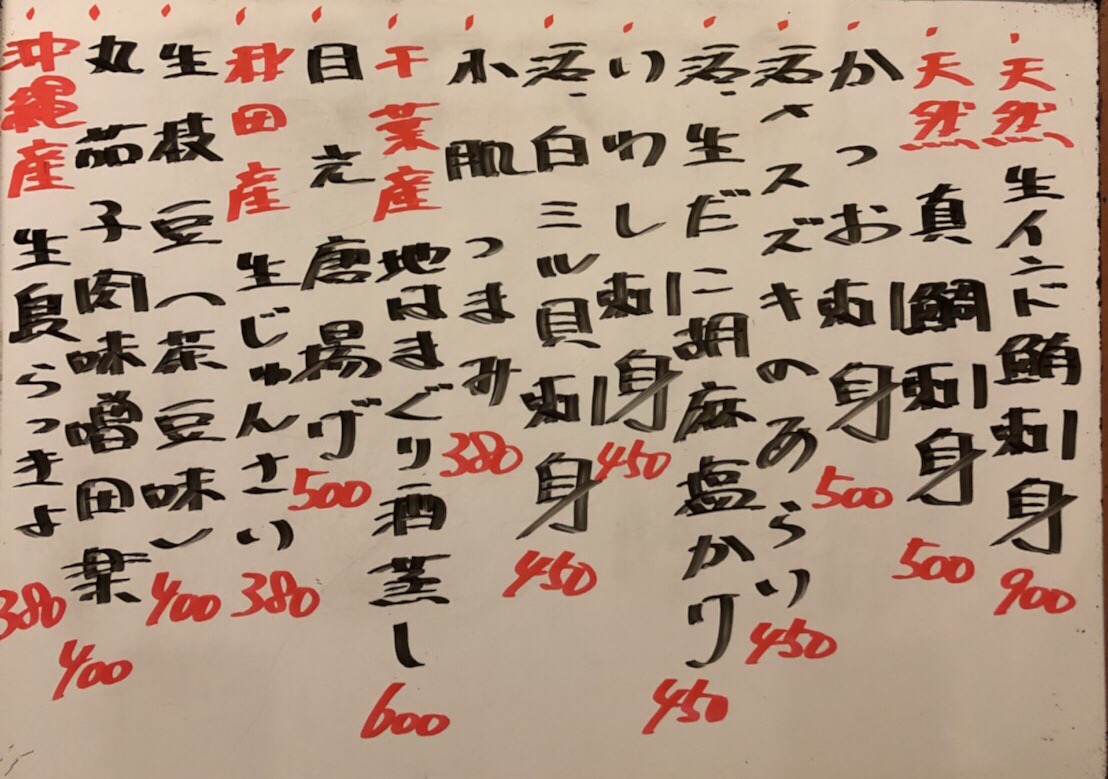 天然 生インド鮪刺身 900
天然 真鯛刺身 500
かつお刺身 500
活〆スズキのあらい 450
活生だこ胡麻塩かけ 450
いわし刺身 450
活白ミル貝刺身 450
小肌つまみ 380
千葉産 地はまぐり酒蒸し 600
目光唐揚げ 500
秋田産 生じゅんさい 380
生枝豆(茶豆味) 400
丸茄子肉味噌田楽 400
沖縄産 生島らっきょ 380